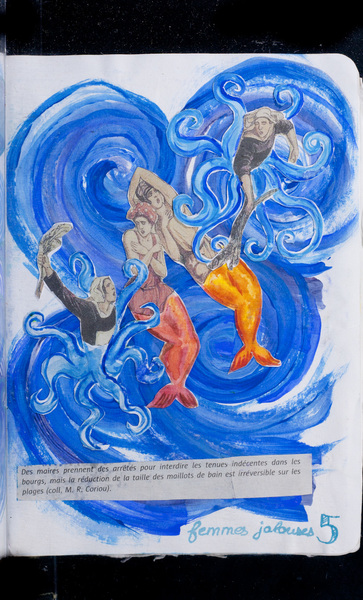 Des maires prennent des arrêtés pour interdire les tenues indécentes dans les
bourgs, mais la réduction de la taille des maillots de bain est irréversible sur les
plages (coll. M. R. Cariou).
femmes jalouses 5